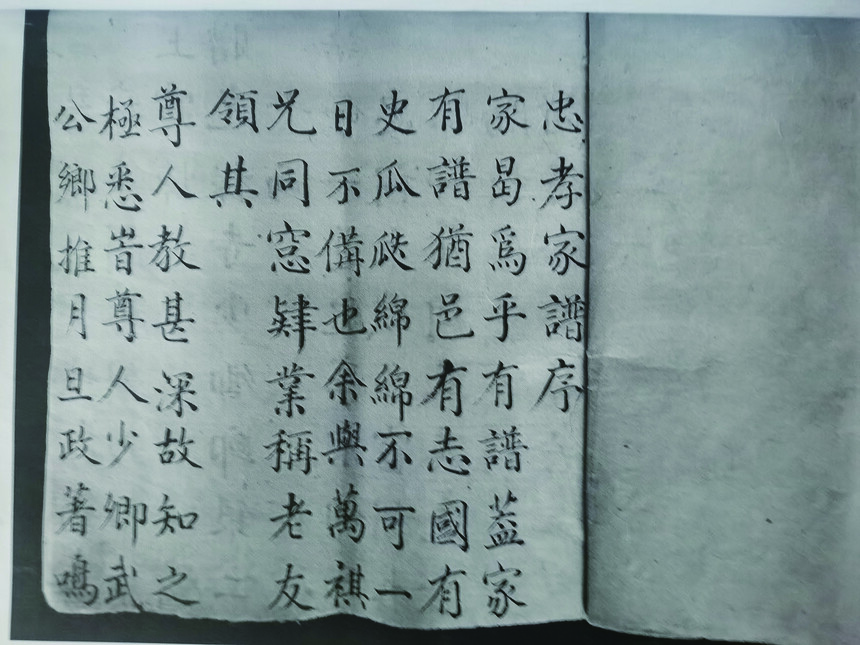 忠孝家譜序
家曷爲乎有譜葢家
有譜猶邑有志國有
史瓜瓞綿綿不可一
日不備也余與萬祺
兄同窓肄業稱老友
領其
尊人教甚深故知之
極悉峕尊人少卿武
公鄉推月旦政著鳴